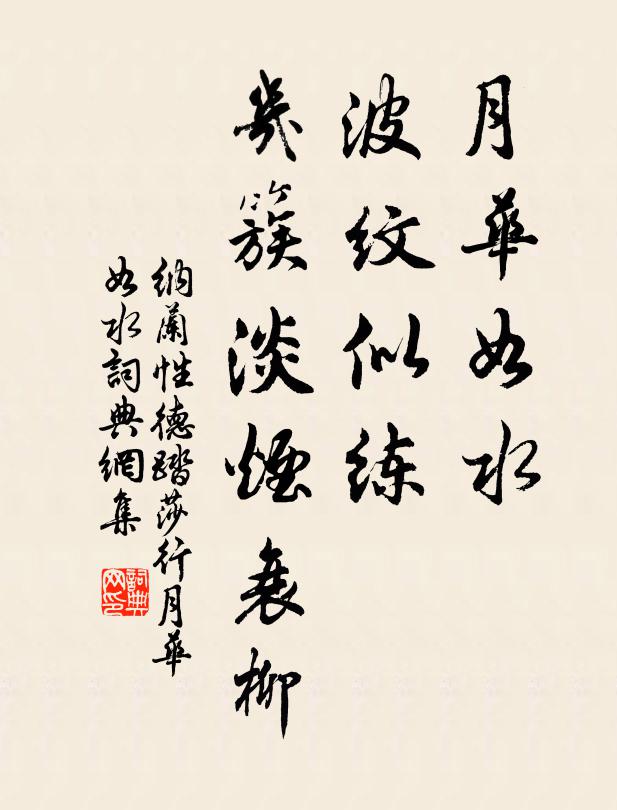 月華如水
波紋似練
幾簇淡煙衰柳
納蘭性德踏莎行月華
如水詞典網集
詞典网印